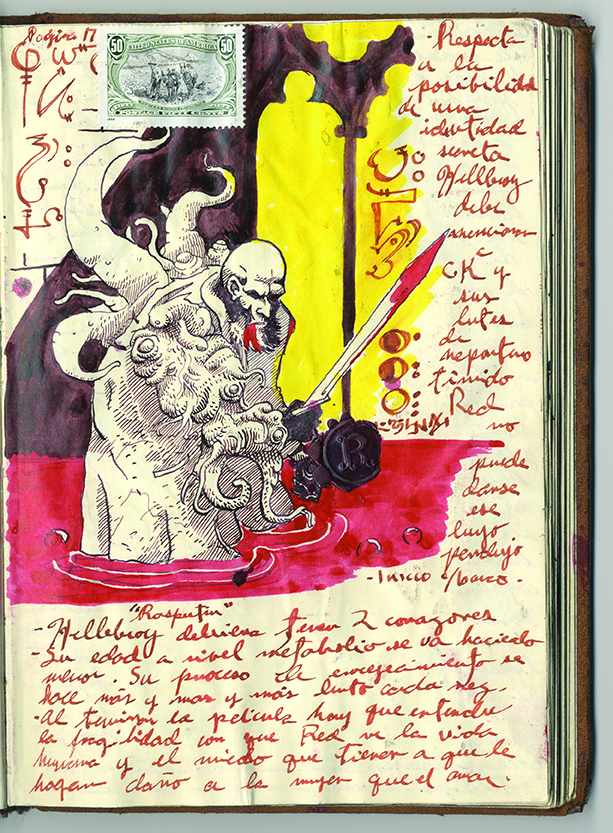 Pagina 17
50 UNITED STATES OF AMERICA 50
POSTAGE FIFTY CENTS
- Respecta
a la
posibilidad
de una
identidad
secreta
Hellboy
debe
mencionar
a
CK y
sus
lentes
de
reportero
timido
Red
no
puede
darse
ese
lujo
pendejo
- Inicio / barco -
R
"Rasputin"
- Hellboy debiera tener 2 corazones
- Su edad a nivel metabolico se va haciendo
menor. Su proceso de envejecimiento se
hace más y mas y más lento cada vez.
- Al terminar la pelicula hay que entender
la fragilidad con que Red ve la vida
humana y el miedo que tiene a que le
hagan daño a la mujer que el ama.